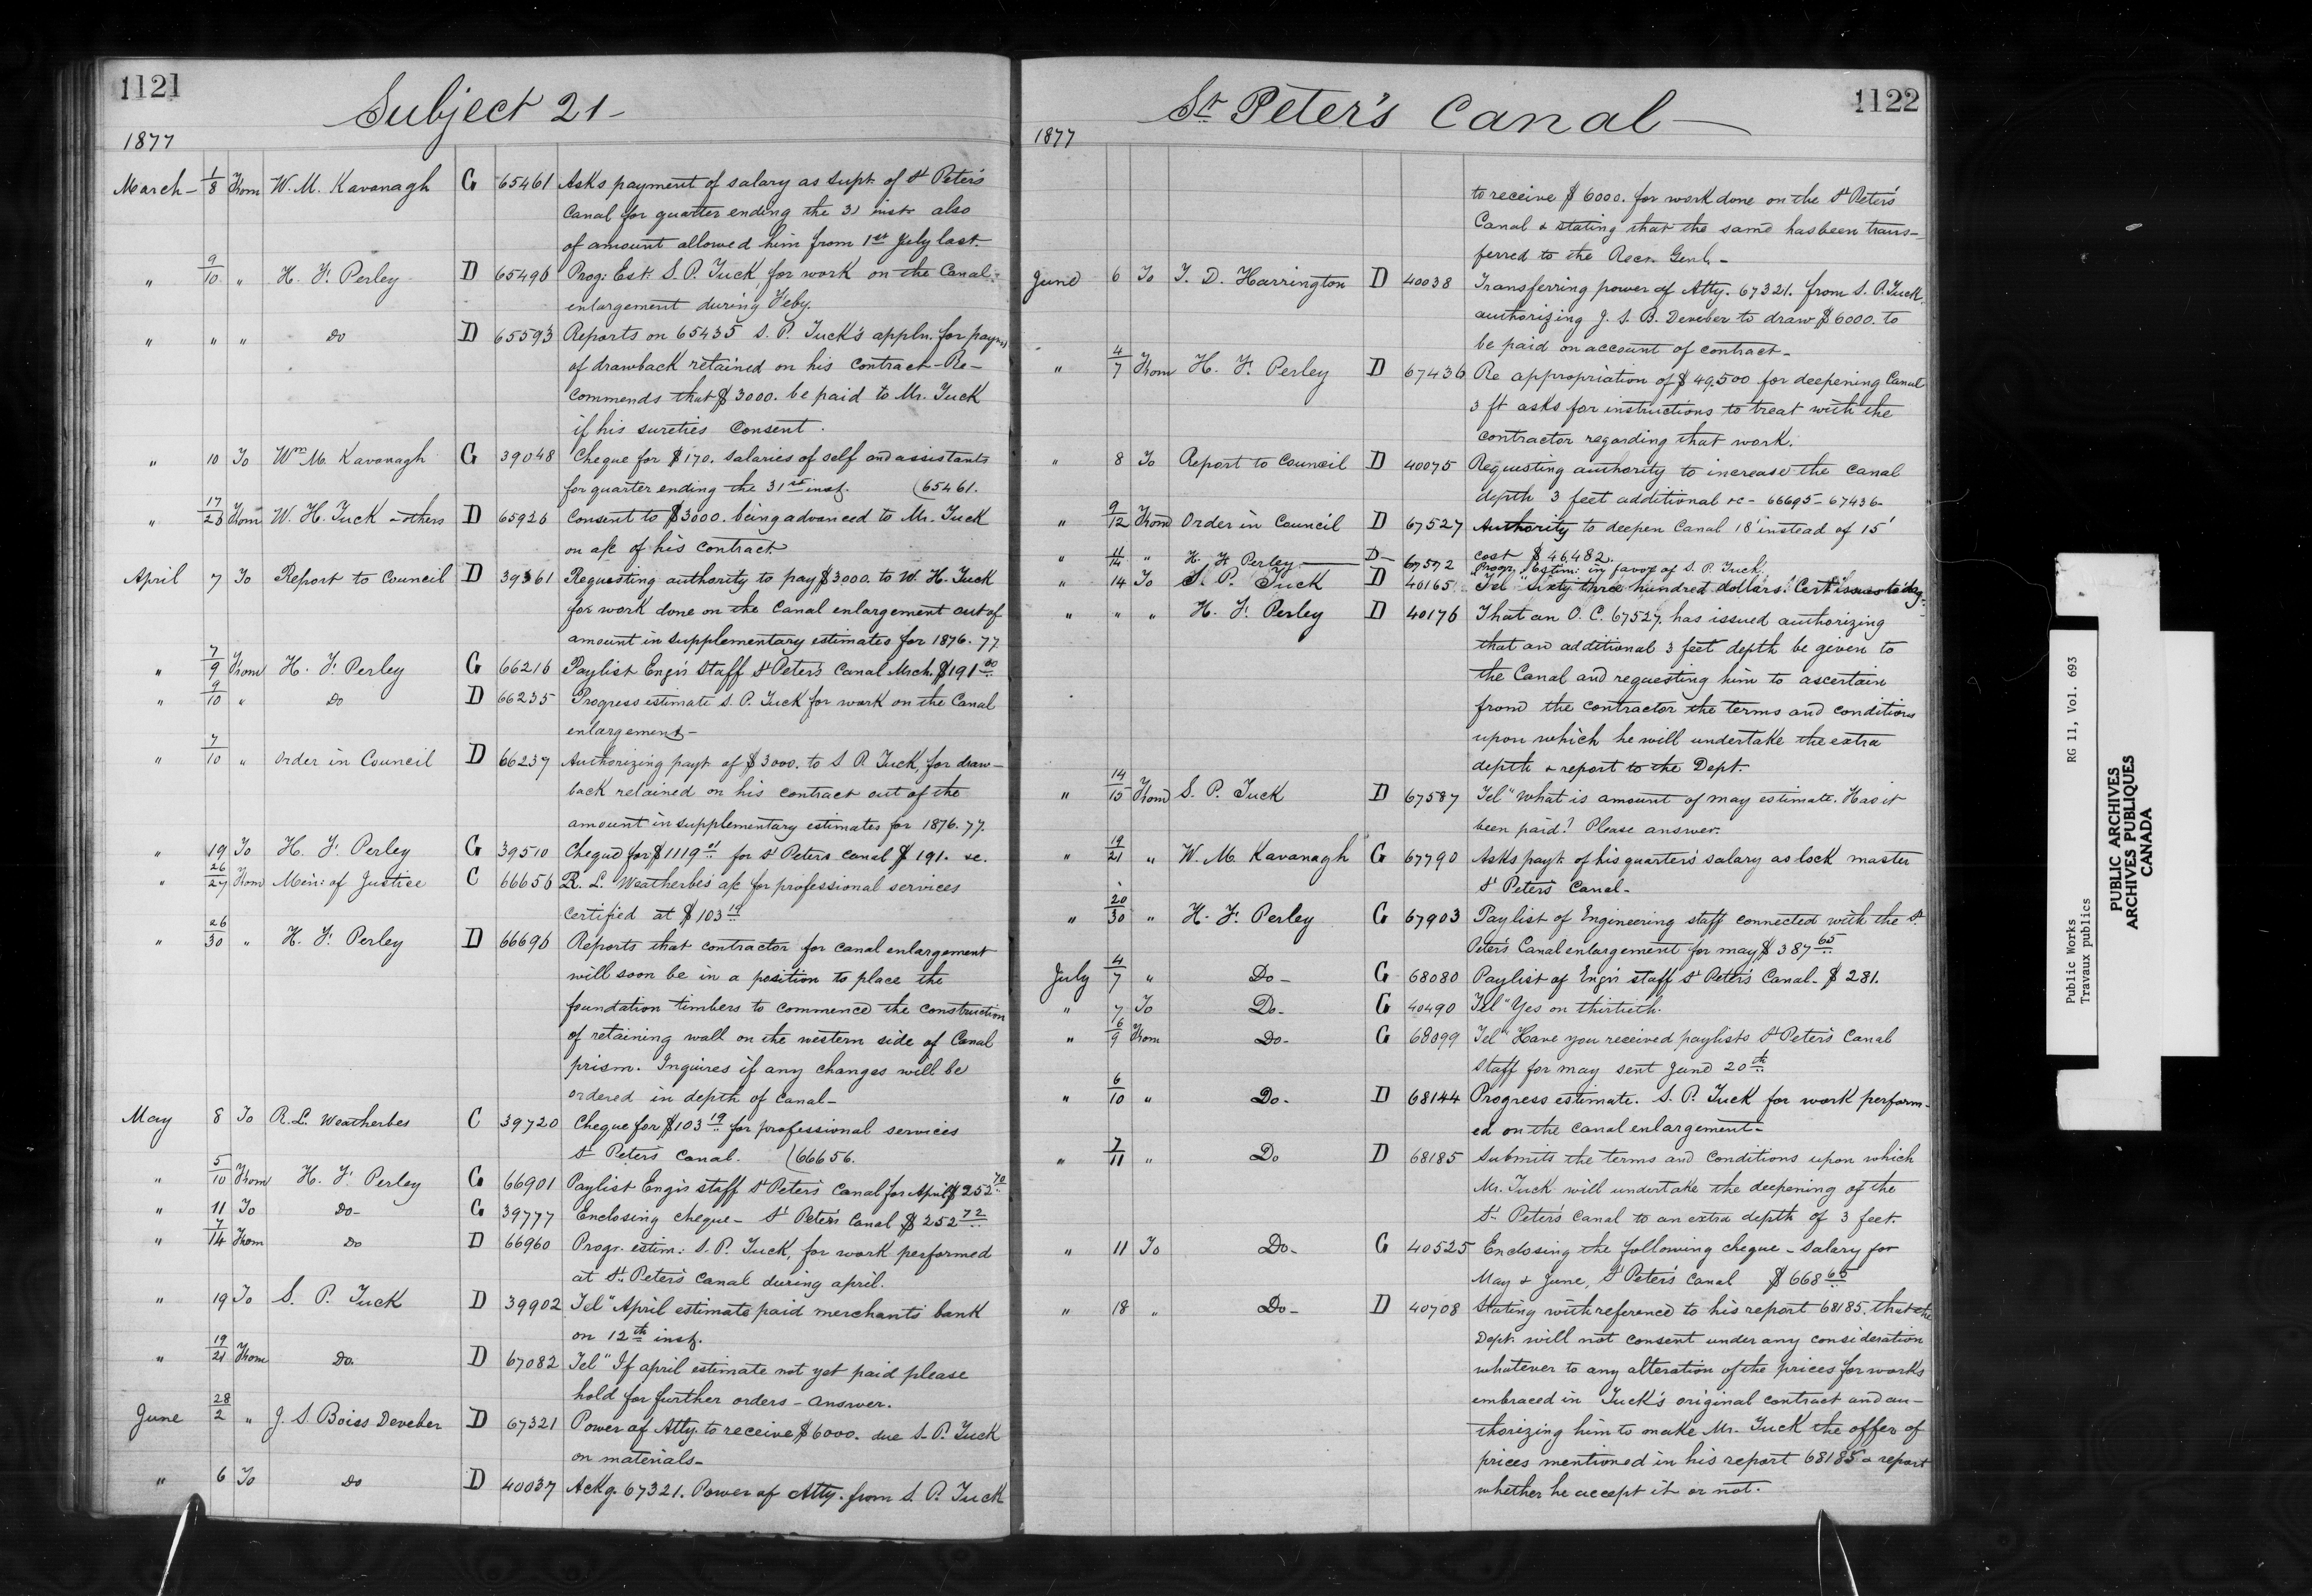 1121
Subject 21 -
1877
March - 1/8 From W. M. Kavanagh G 65461 Asks payment of salary as Supt. of St Peter's
Canal for quarter ending the 31 inst. also
of amount allowed him from 1st July last.
" 9/10 " H. F. Perley D 65496 Prog: Est: S. P. Tuck, for work on the Canal
enlargement during Feby.
" " " Do D 65593 Reports on 65435 S. P. Tuck's appln. for paymt
of drawback retained on his contract - Re-
commends that $3000. be paid to Mr. Tuck
if his sureties consent.
" 10 To Wm M. Kavanagh G 39048 Cheque for $170. salaries of self and assistants
for quarter ending the 31st inst. (65461.
" 17/23 From W. H. Tuck & others D 65926 Consent to $3000. being advanced to Mr. Tuck
on a/c of his contract
April 7 To Report to Council D 39361 Requesting authority to pay $3000. to W. H. Tuck
for work done on the Canal enlargement out of
amount in supplementary estimates for 1876.77.
" 7/9 From H. F. Perley G 66216 Paylist Engr's Staff St Peter's Canal Mrch. $191.00
" 9/10 " Do D 66235 Progress estimate S. P. Tuck for work on the Canal
enlargement -
" 7/10 " Order in Council D 66237 Authorizing payt. of $3000. to S. P. Tuck, for draw-
back retained on his contract out of the
amount in supplementary estimates for 1876.77.
" 19 To H. F. Perley G 39510 Cheque for $1119.01 for St Peters Canal $191. &c.
" 26/27 From Min: of Justice C 66656 R. L. Weatherbe's a/c for professional services
certified at $103.19
" 26/30 " H. F. Perley D 66696 Reports that contractor for canal enlargement
will soon be in a position to place the
foundation timbers to commence the construction
of retaining wall on the western side of Canal
prism. Inquires if any changes will be
ordered in depth of Canal -
May 8 To R. L. Weatherbes C 39720 Cheque for $103.19 for professional services
St Peter's Canal. (66656.
" 5/10 From H. F. Perley G 66901 Paylist Engr's staff St Peter's Canal for April $252.70
" 11 To Do - G 39777 Enclosing cheque - St Peter's Canal $252.72
" 7/14 From Do D 66960 Progr. estim: S. P. Tuck, for work performed
at St. Peter's Canal during april.
" 19 To S. P. Tuck D 39902 Tel " April estimate paid merchants bank
on 12th inst.
" 19/21 From Do. D 67082 Tel " If april estimate not yet paid please
hold for further orders - answer.
June 28/2 " J. S. Boies Deveber D 67321 Power of Atty. to receive $6000. due S. P. Tuck
on materials -
" 6 To Do D 40037 Ackg. 67321. Power of Atty. from S. P. Tuck
St. Peter's Canal -
1122
1877
to receive $6000. for work done on the St Peter's
Canal & stating that the same has been trans-
ferred to the Recr. Genl. -
June 6 To T. D. Harrington D 40038 Transferring power of Atty. 67321. from S. P. Tuck,
authorizing J. S. B. Deveber to draw $6000. to
be paid on account of contract -
" 4/7 From H. F. Perley D 67436 Re appropriation of $49,500 for deepening Canal
3 ft asks for instructions to treat with the
contractor regarding that work.
" 8 To Report to Council D 40075 Requesting authority to increase the Canal
depth 3 feet additional &c - 66695 - 67436 -
" 9/12 From Order in Council D 67527 Authority to deepen Canal 18' instead of 15'
cost $46,482.
" 11/14 " H. F. Perley D - 67572 Progr. Estim: in favor of S. P. Tuck
" 14 To S. P. Tuck D 40165 Tel " Sixty three hundred dollars. Cert issues today -
" " " H. F. Perley D 40176 That an O. C. 67527. has issued authorizing
that an additional 3 feet depth be given to
the Canal and requesting him to ascertain
from the contractor the terms and conditions
upon which he will undertake the extra
depth & report to the Dept.
" 14/15 From S. P. Tuck D 67587 Tel " What is amount of may estimate. Has it
been paid? Please answer.
" 19/21 " W. M. Kavanagh G 67790 Asks payt. of his quarter's salary as lock master
St Peter's Canal -
" 20/30 " H. F. Perley G 67903 Paylist of Engineering staff connected with the St.
Peter's Canal enlargement for may $387.65
July 4/7 " Do - G 68080 Paylist of Engr's staff St Peter's Canal - $281.
" 7 To Do - G 40490 Tel " Yes on thirtieth.
" 6/9 From Do - G 68099 Tel " Have you received paylists St Peter's Canal
staff for may sent June 20th
" 6/10 " Do - D 68144 Progress estimate. S. P. Tuck for work perform-
ed on the canal enlargement -
" 7/11 " Do D 68185 Submits the terms and conditions upon which
Mr. Tuck will undertake the deepening of the
St. Peter's Canal to an extra depth of 3 feet.
" 11 To Do - G 40525 Enclosing the following cheque - salary for
May & June, St Peter's Canal $668.65
" 18 " Do - D 40708 Stating with reference to his report 68185. that the
Dept. will not consent under any consideration
whatever to any alteration of the prices for works
embraced in Tuck's original contract and au-
thorizing him to make Mr. Tuck the offer of
prices mentioned in his report 68185 & report
whether he accept it or not.
Public Works RG 11, Vol. 693
Travaux publics
PUBLIC ARCHIVES
ARCHIVES PUBLIQUES
CANADA